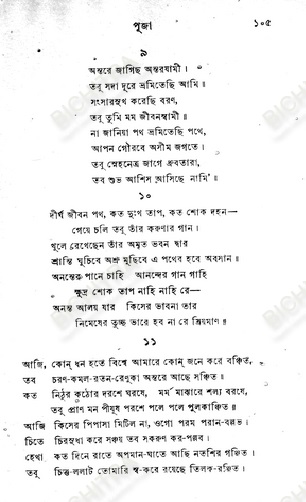 পূজা ১০৫
৯
অন্তরে জাগিছ অন্তরযামী ।
তবু সদা দূরে ভ্রমিতেছি আমি ॥
সংসারসুখ করেছি বরণ,
তবু তুমি মম জীবনস্বামী ॥
না জানিয়া পথ ভ্রমিতেছি পথে,
আপন গৌরবে অসীম জগতে ।
তবু স্নেহনেত্র জাগে ধ্রুবতারা,
তব শুভ আশিস আসিছে নামি' ॥
১০
দীর্ঘ জীবন পথ, কত দুঃখ তাপ, কত শোক দহন—
গেয়ে চলি তবু তাঁর করুণার গান ।
খুলে রেখেছেন তাঁর অমৃত ভবন দ্বার
শ্রান্তি ঘুচিবে অশ্রু মুছিবে এ পথের হবে অবসান ॥
অনন্তের পানে চাহি আনন্দের গান গাহি
ক্ষুদ্র শোক তাপ নাহি নাহি রে—
অনন্ত আলয় যার কিসের ভাবনা তার
নিমেষের তুচ্ছ ভারে হব না রে ম্রিয়মাণ ॥
১১
আজি, কোন্ ধন হতে বিশ্বে আমারে কোন্ জনে করে বঞ্চিত,
তব চরণ-কমল-রতন-রেণুকা অন্তরে আছে সঞ্চিত ॥
কত নিঠুর কঠোর দরশে ঘরষে, মর্ম মাঝারে শল্য বরষে,
তবু প্রাণ মন পীযূষ পরশে পলে পলে পুলকাঞ্চিত ॥
আজি কিসের পিপাসা মিটিল না, ওগো পরম পরান-বল্লভ ।
চিতে চিরসুধা করে সঞ্চয় তব সকরুণ কর-পল্লব ।
হেথা কত দিনে রাতে অপমান-ঘাতে আছি নতশির গঞ্জিত ।
তবু চিত্ত-ললাট তোমারি স্ব-করে রয়েছে তিলক-রঞ্জিত ।